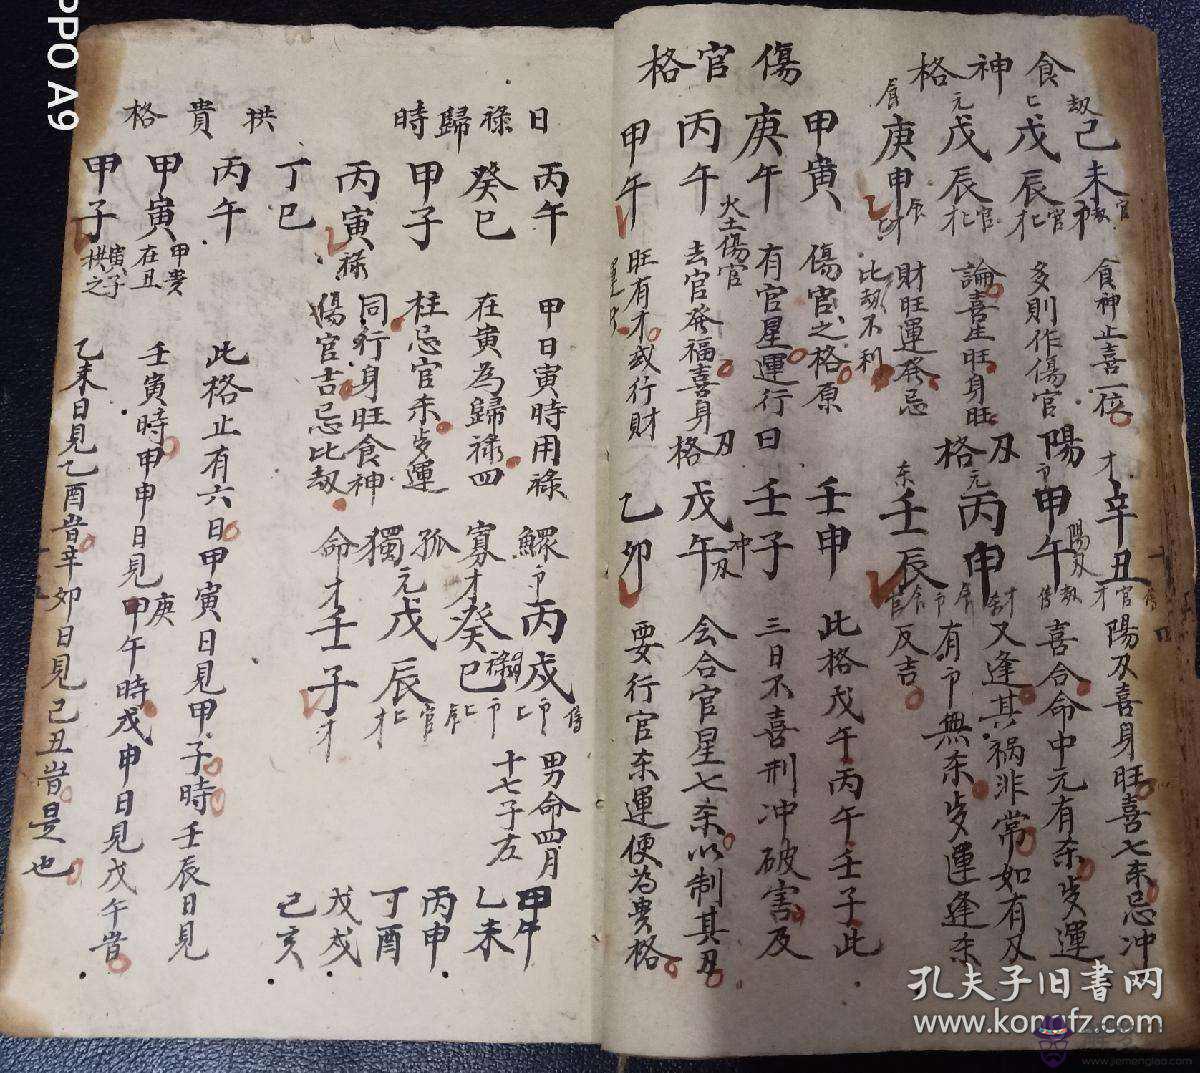 食神格
己未
戊辰
戊辰
庚申
食神止喜一位
多則作傷官
論喜生旺身旺
財旺運發忌
比劫不利
傷官格
甲寅
庚午
丙午
甲午
傷官之格原
有官星運行
火土傷官
去官發福喜身
旺有才或行財
陽刃格
辛丑
甲午
丙申
壬辰
陽刃喜身旺喜七杀忌冲
喜合命中元有杀歲運
又逢其禍非常如有刃
有卩無杀歲運逢杀
反吉
刃格
壬申
壬子
戊午
乙卯
此格戊午丙午壬子此
三日不喜刑冲破害及
会合官星七杀以制其刃
要行官杀運便為貴格
日祿歸時
丙午
癸巳
甲子
丙寅
甲日寅時用祿
在寅為歸祿四
柱忌官杀歲運
同行身旺食神
傷官吉忌比劫
鰥寡孤獨命
丙戌
癸巳
戊辰
壬子
男命四月
十七子左
甲午
乙未
丙申
丁酉
戊戌
己亥
拱貴格
丁巳
丙午
甲寅
甲子
甲貴
在丑
寅子
拱之
此格止有六日甲寅日見甲子時壬辰日見
壬寅時甲申日見甲午時戊申日見戊午時
乙未日見乙酉時辛卯日見己丑時是也
PPO A9
孔夫子旧書网
www.kongfz.com
www.jiemenglao.com